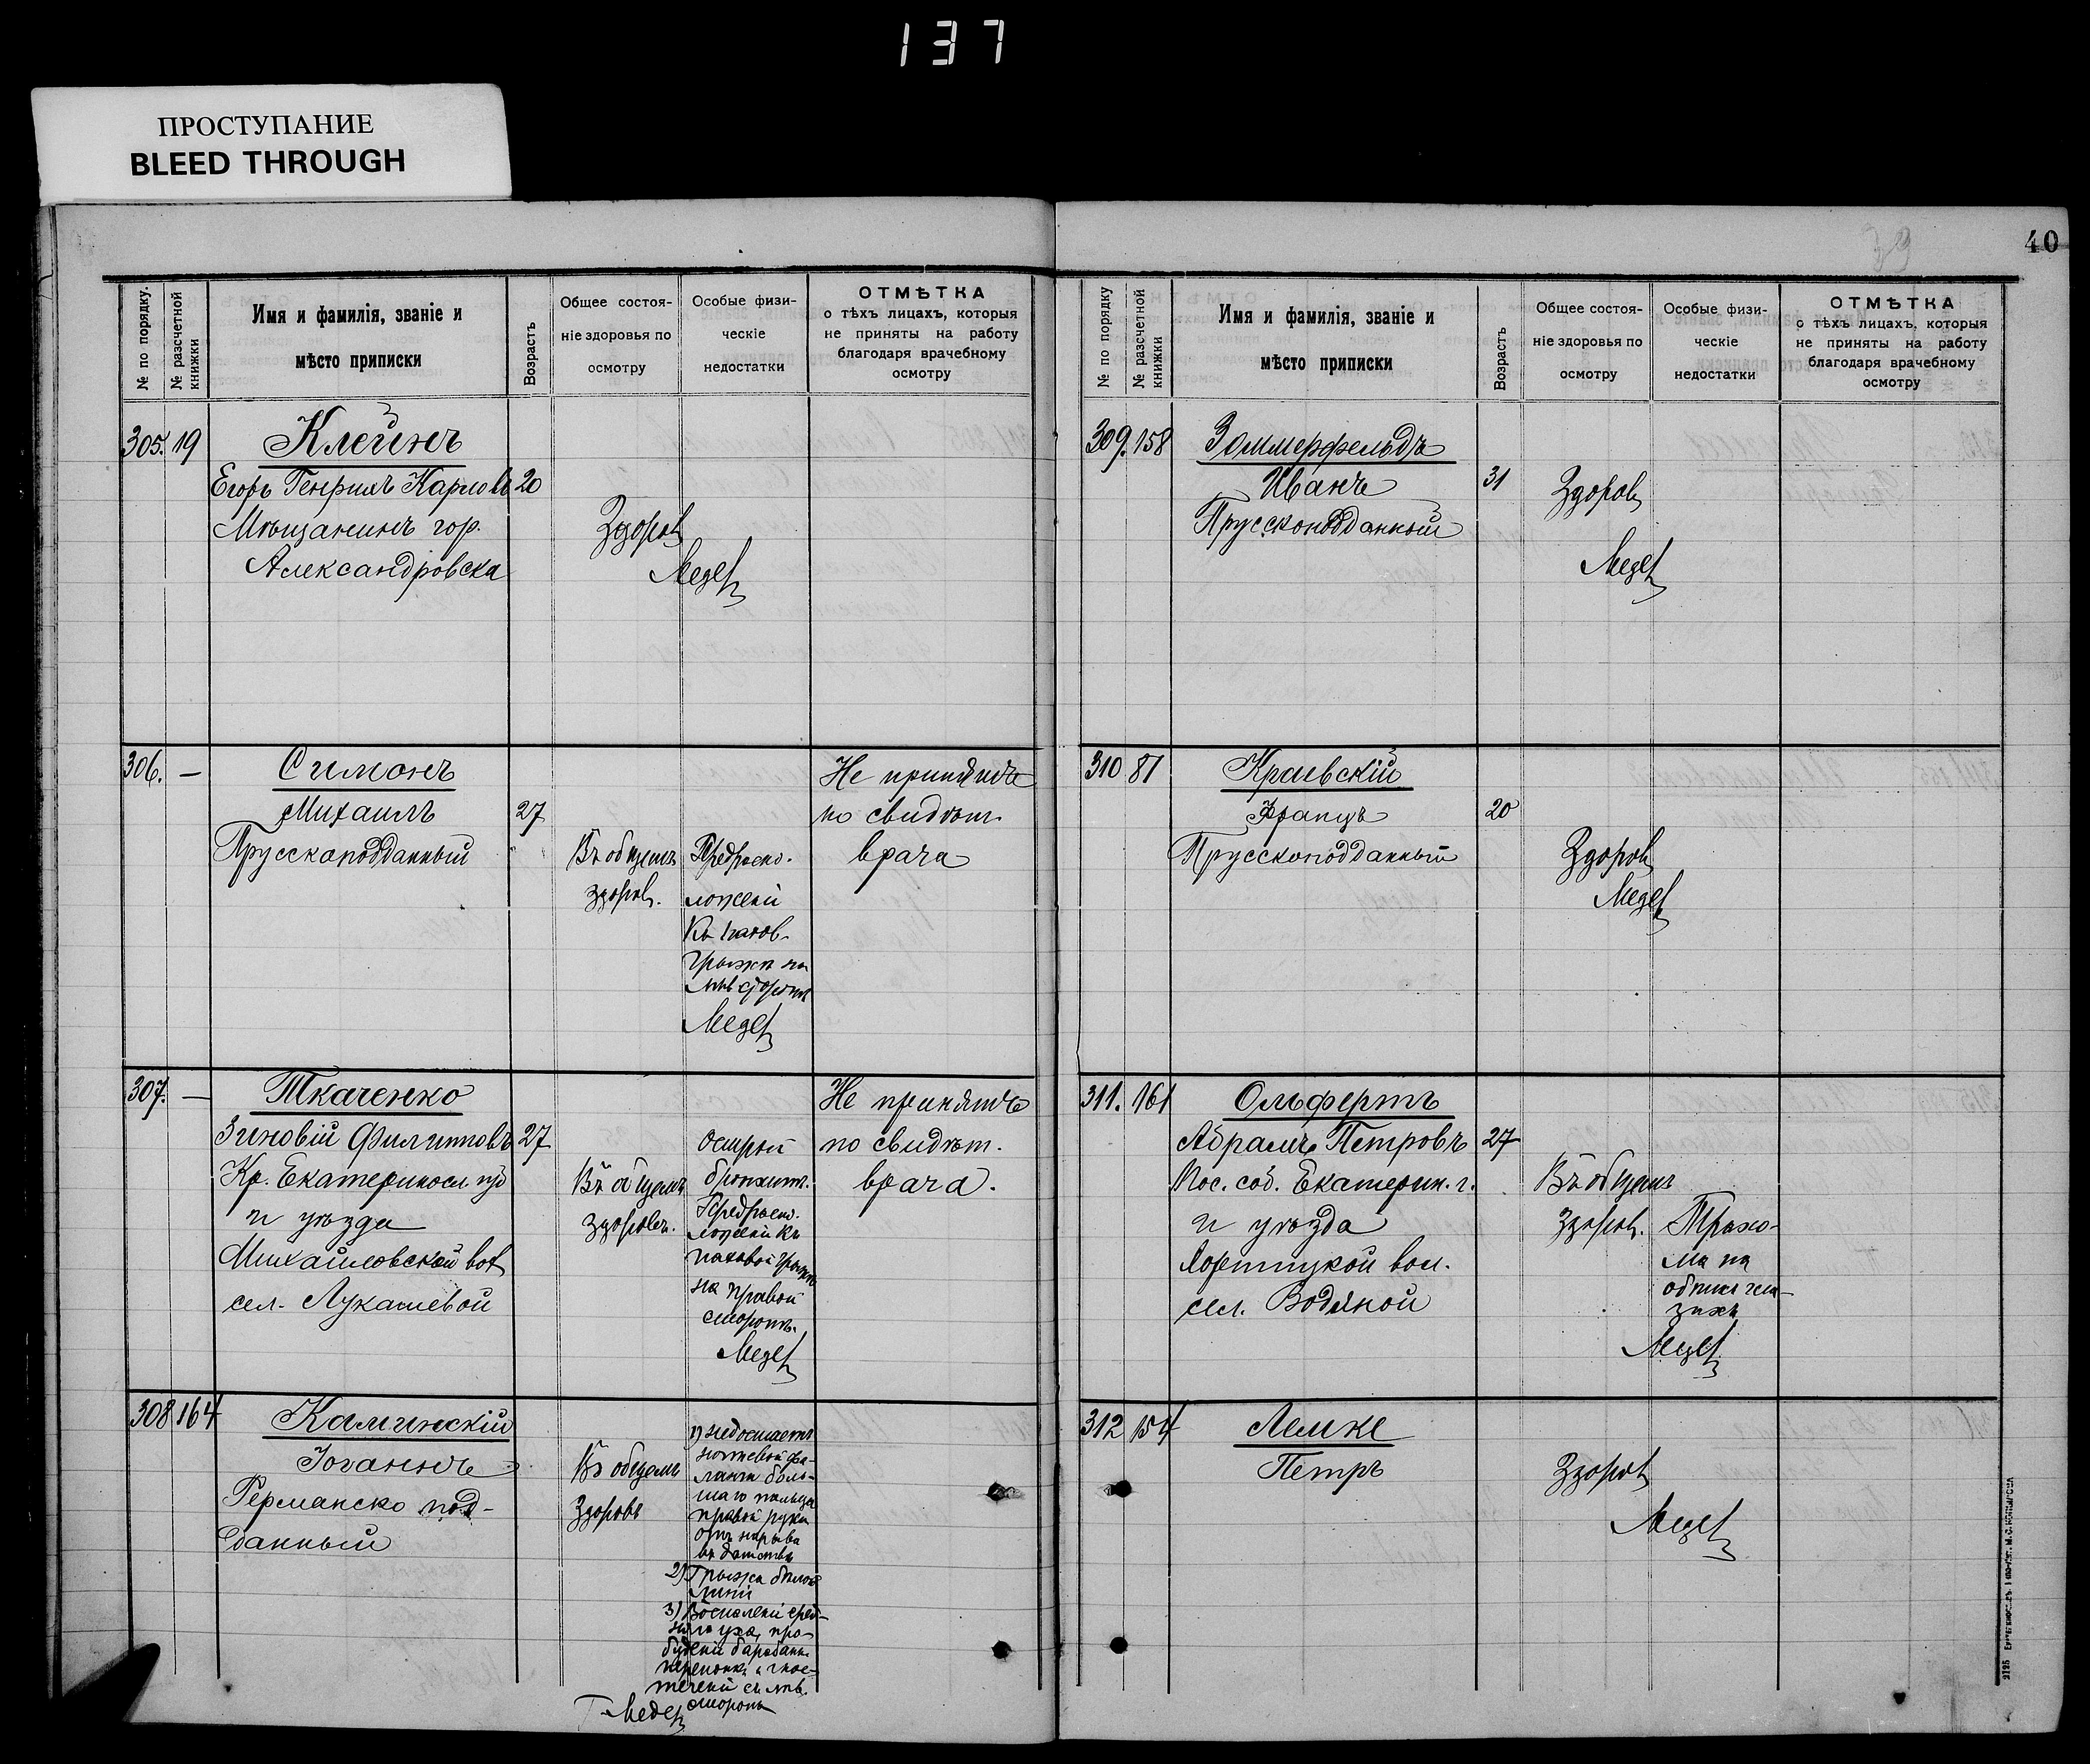 137
ПРОСТУПАНИЕ
BLEED THROUGH
39
40
№ по порядку.
№ разсчетной книжки
Имя и фамилія, званіе и
мѣсто приписки
Возрастъ
Общее состоя-
ніе здоровья по
осмотру
Особые физи-
ческіе
недостатки
ОТМѢТКА
о тѣхъ лицахъ, которыя
не приняты на работу
благодаря врачебному
осмотру
305. 19
Клейнъ
Егоръ Генрихъ Карловъ 20
Мѣщанинъ гор.
Александровска
Здоровъ
306. —
Симонъ
Михаилъ 27
Прусскоподданный
Въ общемъ
здоровъ.
Предраспо-
ложеній
къ пахов.
грыжѣ на
лѣв сторонѣ
Не принятъ
по свидѣт.
врача
307. —
Ткаченко
Зиновій Филипповъ 27
Кр. Екатериносл. губ
и уѣзда
Михайловской вол
сел. Лукашевой
Въ общемъ
здоровъ.
Острый
бронхитъ.
Предраспо-
ложеній къ
паховой грыжѣ
на правой
сторонѣ.
Не принятъ
по свидѣт.
врача.
308 164
Каминскій
Іоганнъ
Германско под-
данный
Въ общемъ
Здоровъ
1) недостаетъ
ногтевой фа-
ланги боль-
шаго пальца
правой руки
отъ нарыва
въ дѣтствѣ
2) Грыжа бѣлой
линіи
3) Воспаленіе сред-
няго уха, про-
буденій барабанн.
перепонки и гное-
теченій съ лѣв.
стороны
№ по порядку
№ разсчетной книжки
Имя и фамилія, званіе и
мѣсто приписки
Возрастъ
Общее состоя-
ніе здоровья по
осмотру
Особые физи-
ческіе
недостатки
ОТМѢТКА
о тѣхъ лицахъ, которыя
не приняты на работу
благодаря врачебному
осмотру
309. 158
Зоммерфельдъ
Иванъ 31
Прусскоподданный
Здоровъ
310 87
Краевскій
Францъ 20
Прусскоподданный
Здоровъ
311. 161
Ольфертъ
Абрамъ Петровъ 27
Пос. соб. Екатерин. г.
и уѣзда
Хортицкой вол.
сел. Водяной
Въ общемъ
здоровъ.
Трахо-
ма на
обоихъ гла-
захъ
312 154
Лемке
Петръ
Здоровъ